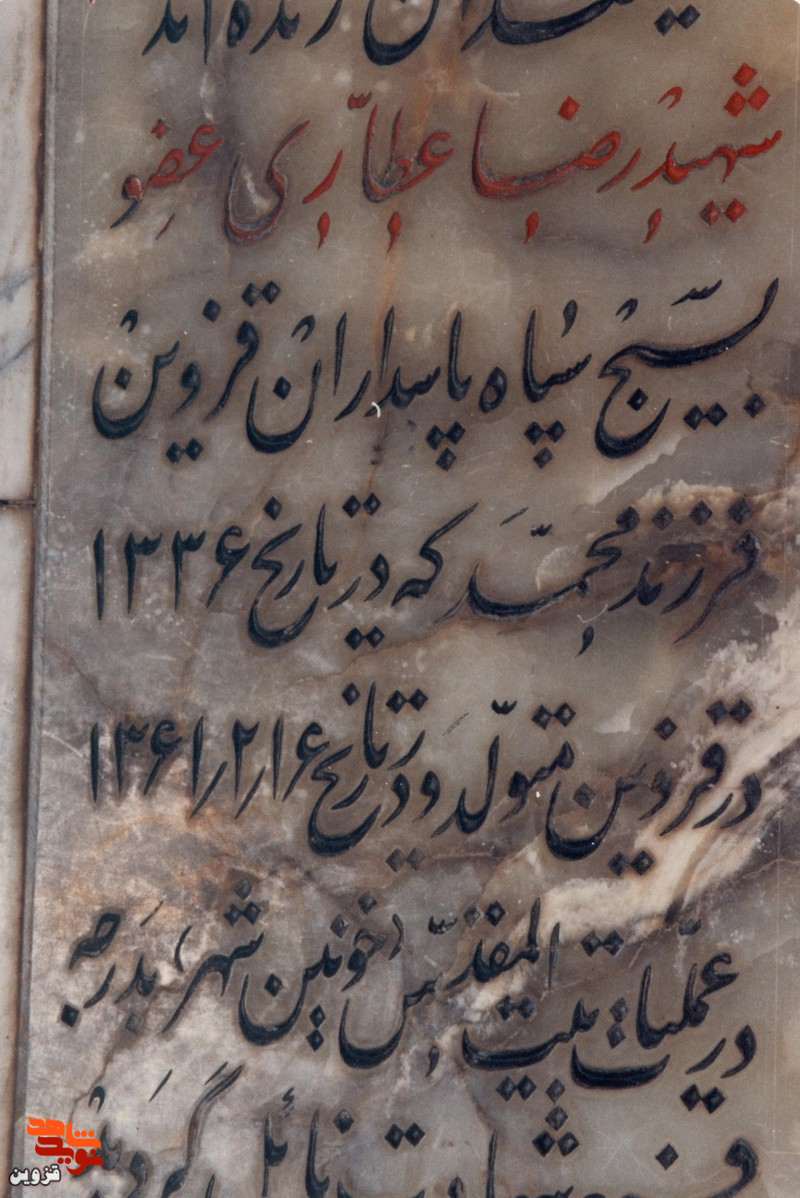 زنده‌اند
شهید رضا عطاری عضو
بسیج سپاه پاسداران قزوین
فرزند محمّد که در تاریخ ۱۳۳۶
در قزوین متولّد و در تاریخ ۱۳۶۱/۲/۱۶
در عملیّات بیت المقدّس (خونین شهر) بدرجه
شهادت نائل گردید
نوید شاهد
قزوین